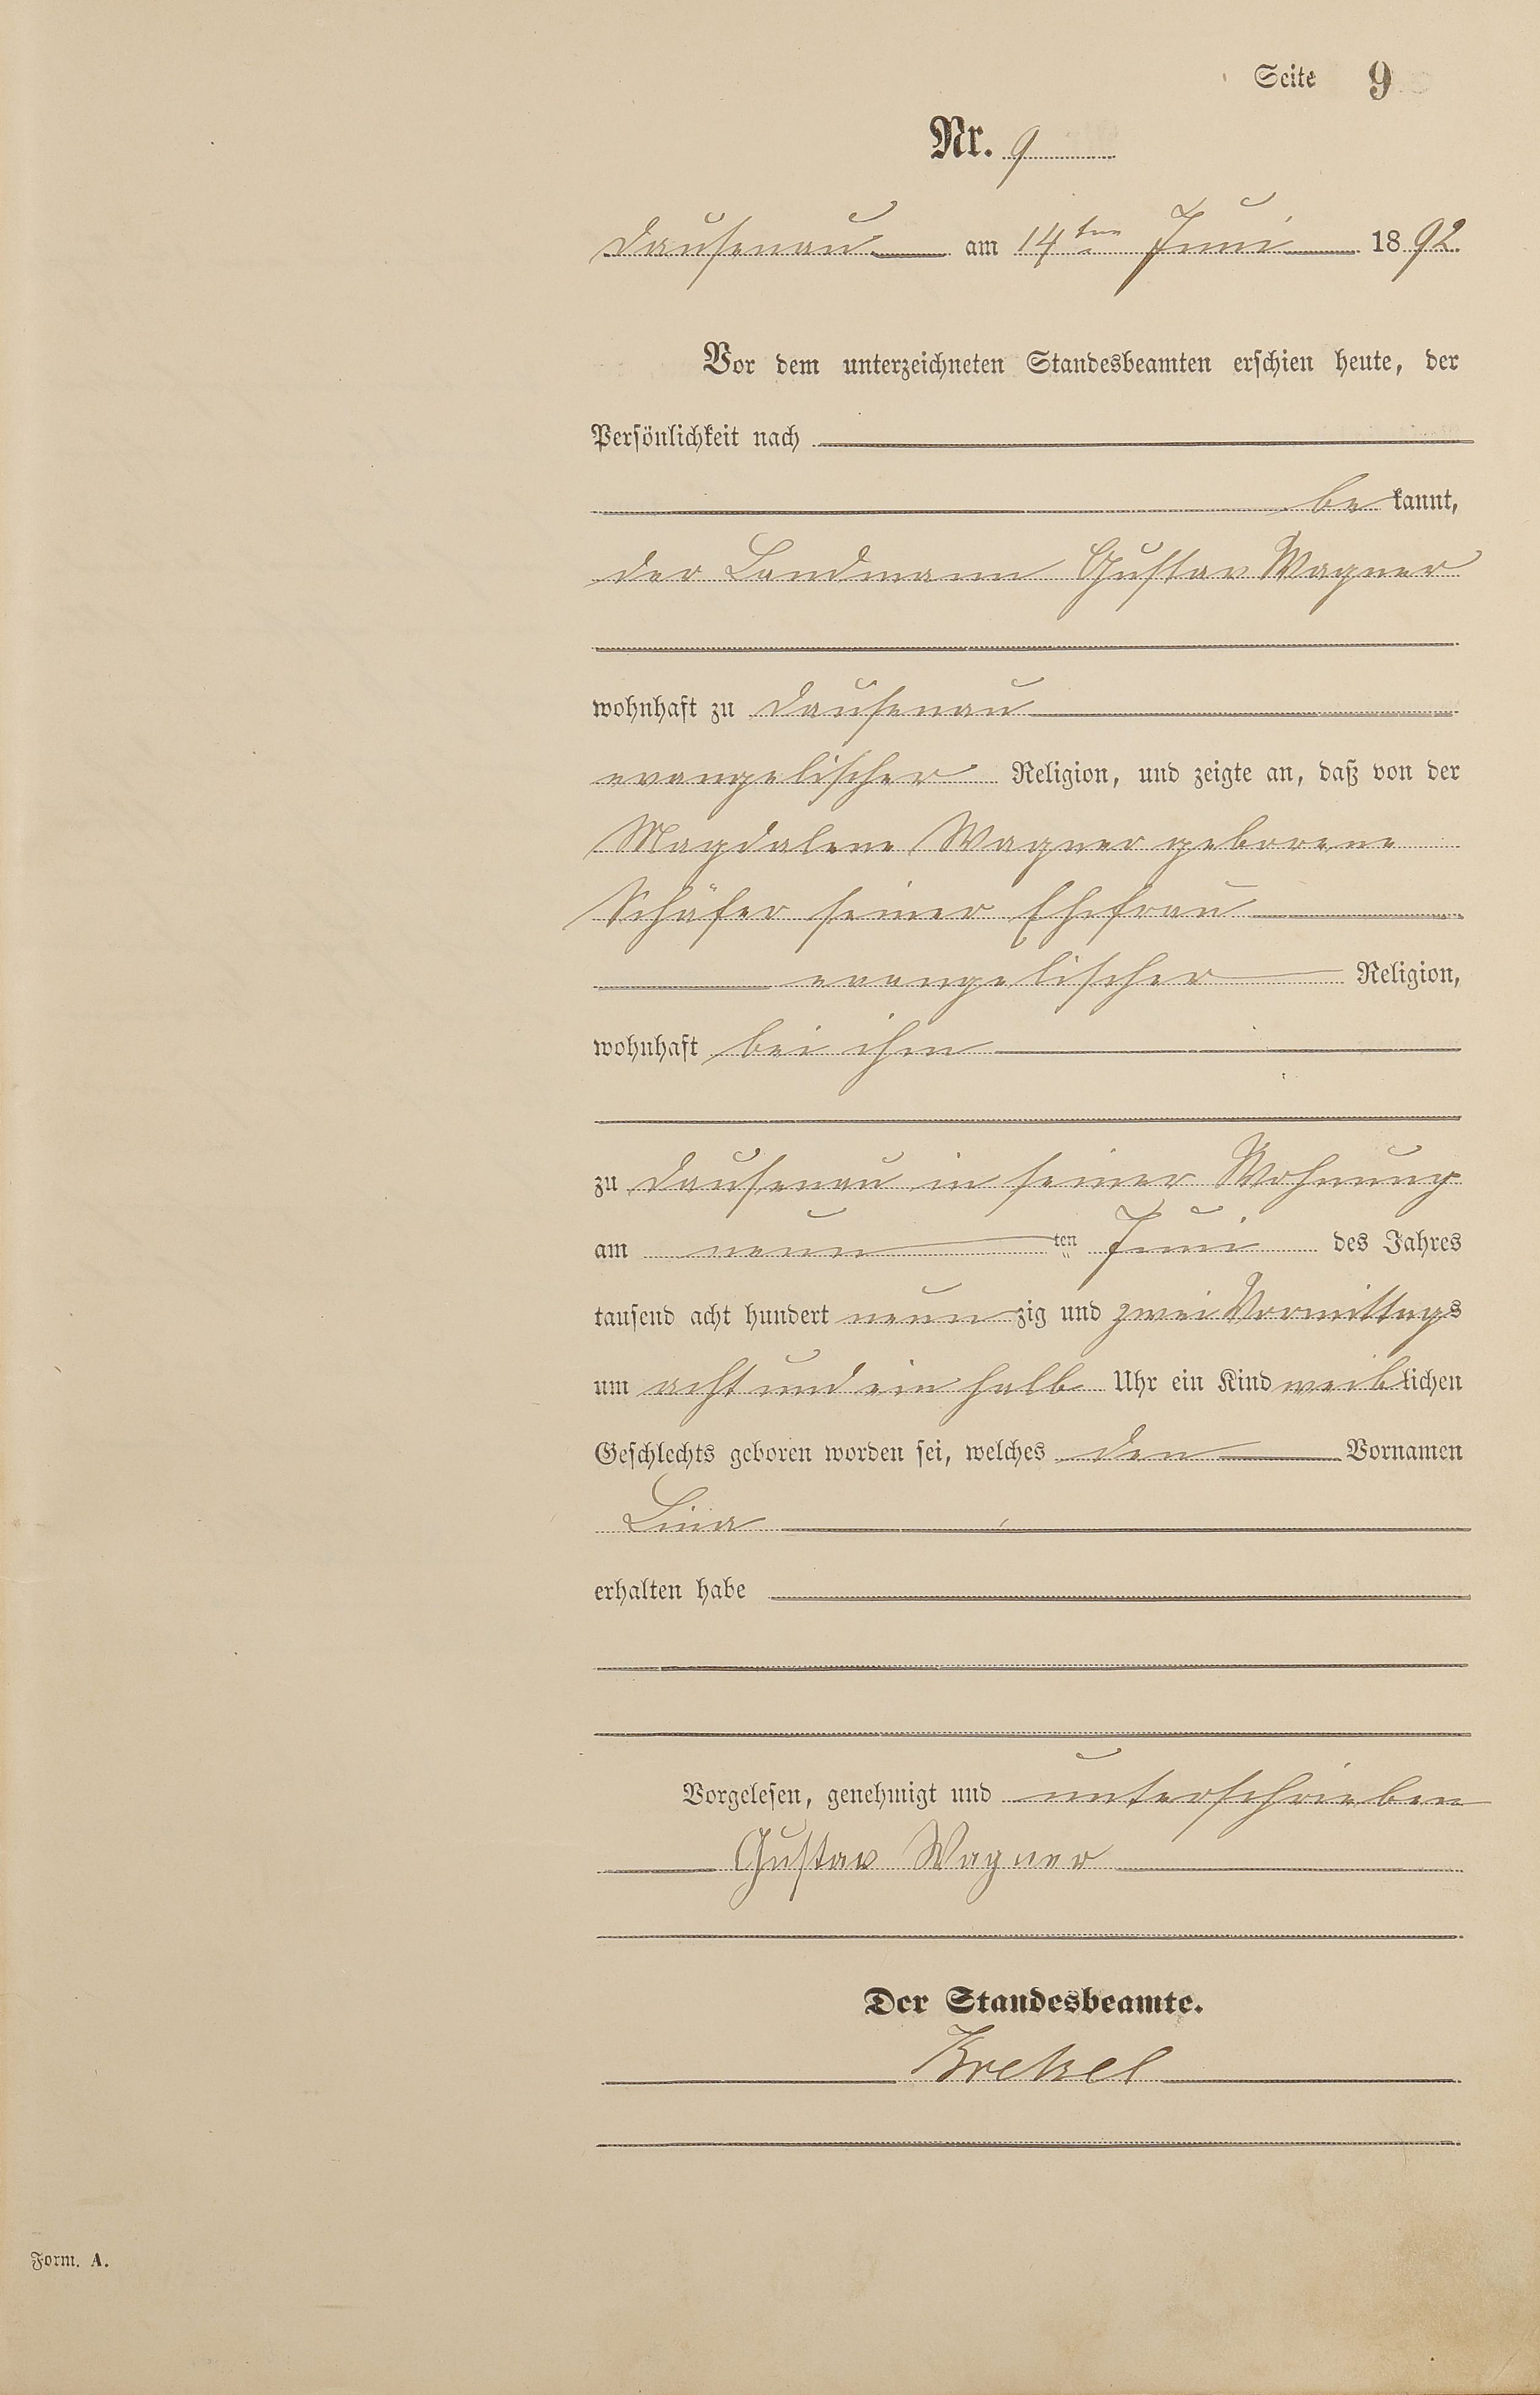 Seite 9
Nr. 9
Dausenau am 14ten Juni 1892.
Vor dem unterzeichneten Standesbeamten erschien heute, der
Persönlichkeit nach
bekannt,
der Landmann Gustav Wagner
wohnhaft zu Dausenau
evangelischer Religion, und zeigte an, daß von der
Magdalene Wagner geborene
Schäfer seiner Ehefrau
evangelischer Religion,
wohnhaft bei ihm
zu Dausenau in seiner Wohnung
am neunten Juni des Jahres
tausend acht hundert neunzig und zwei Vormittags
um acht und ein halb Uhr ein Kind weiblichen
Geschlechts geboren worden sei, welches den Vornamen
Lina
erhalten habe
Vorgelesen, genehmigt und unterschrieben
Gustav Wagner
Der Standesbeamte.
Krekel
Form. A.